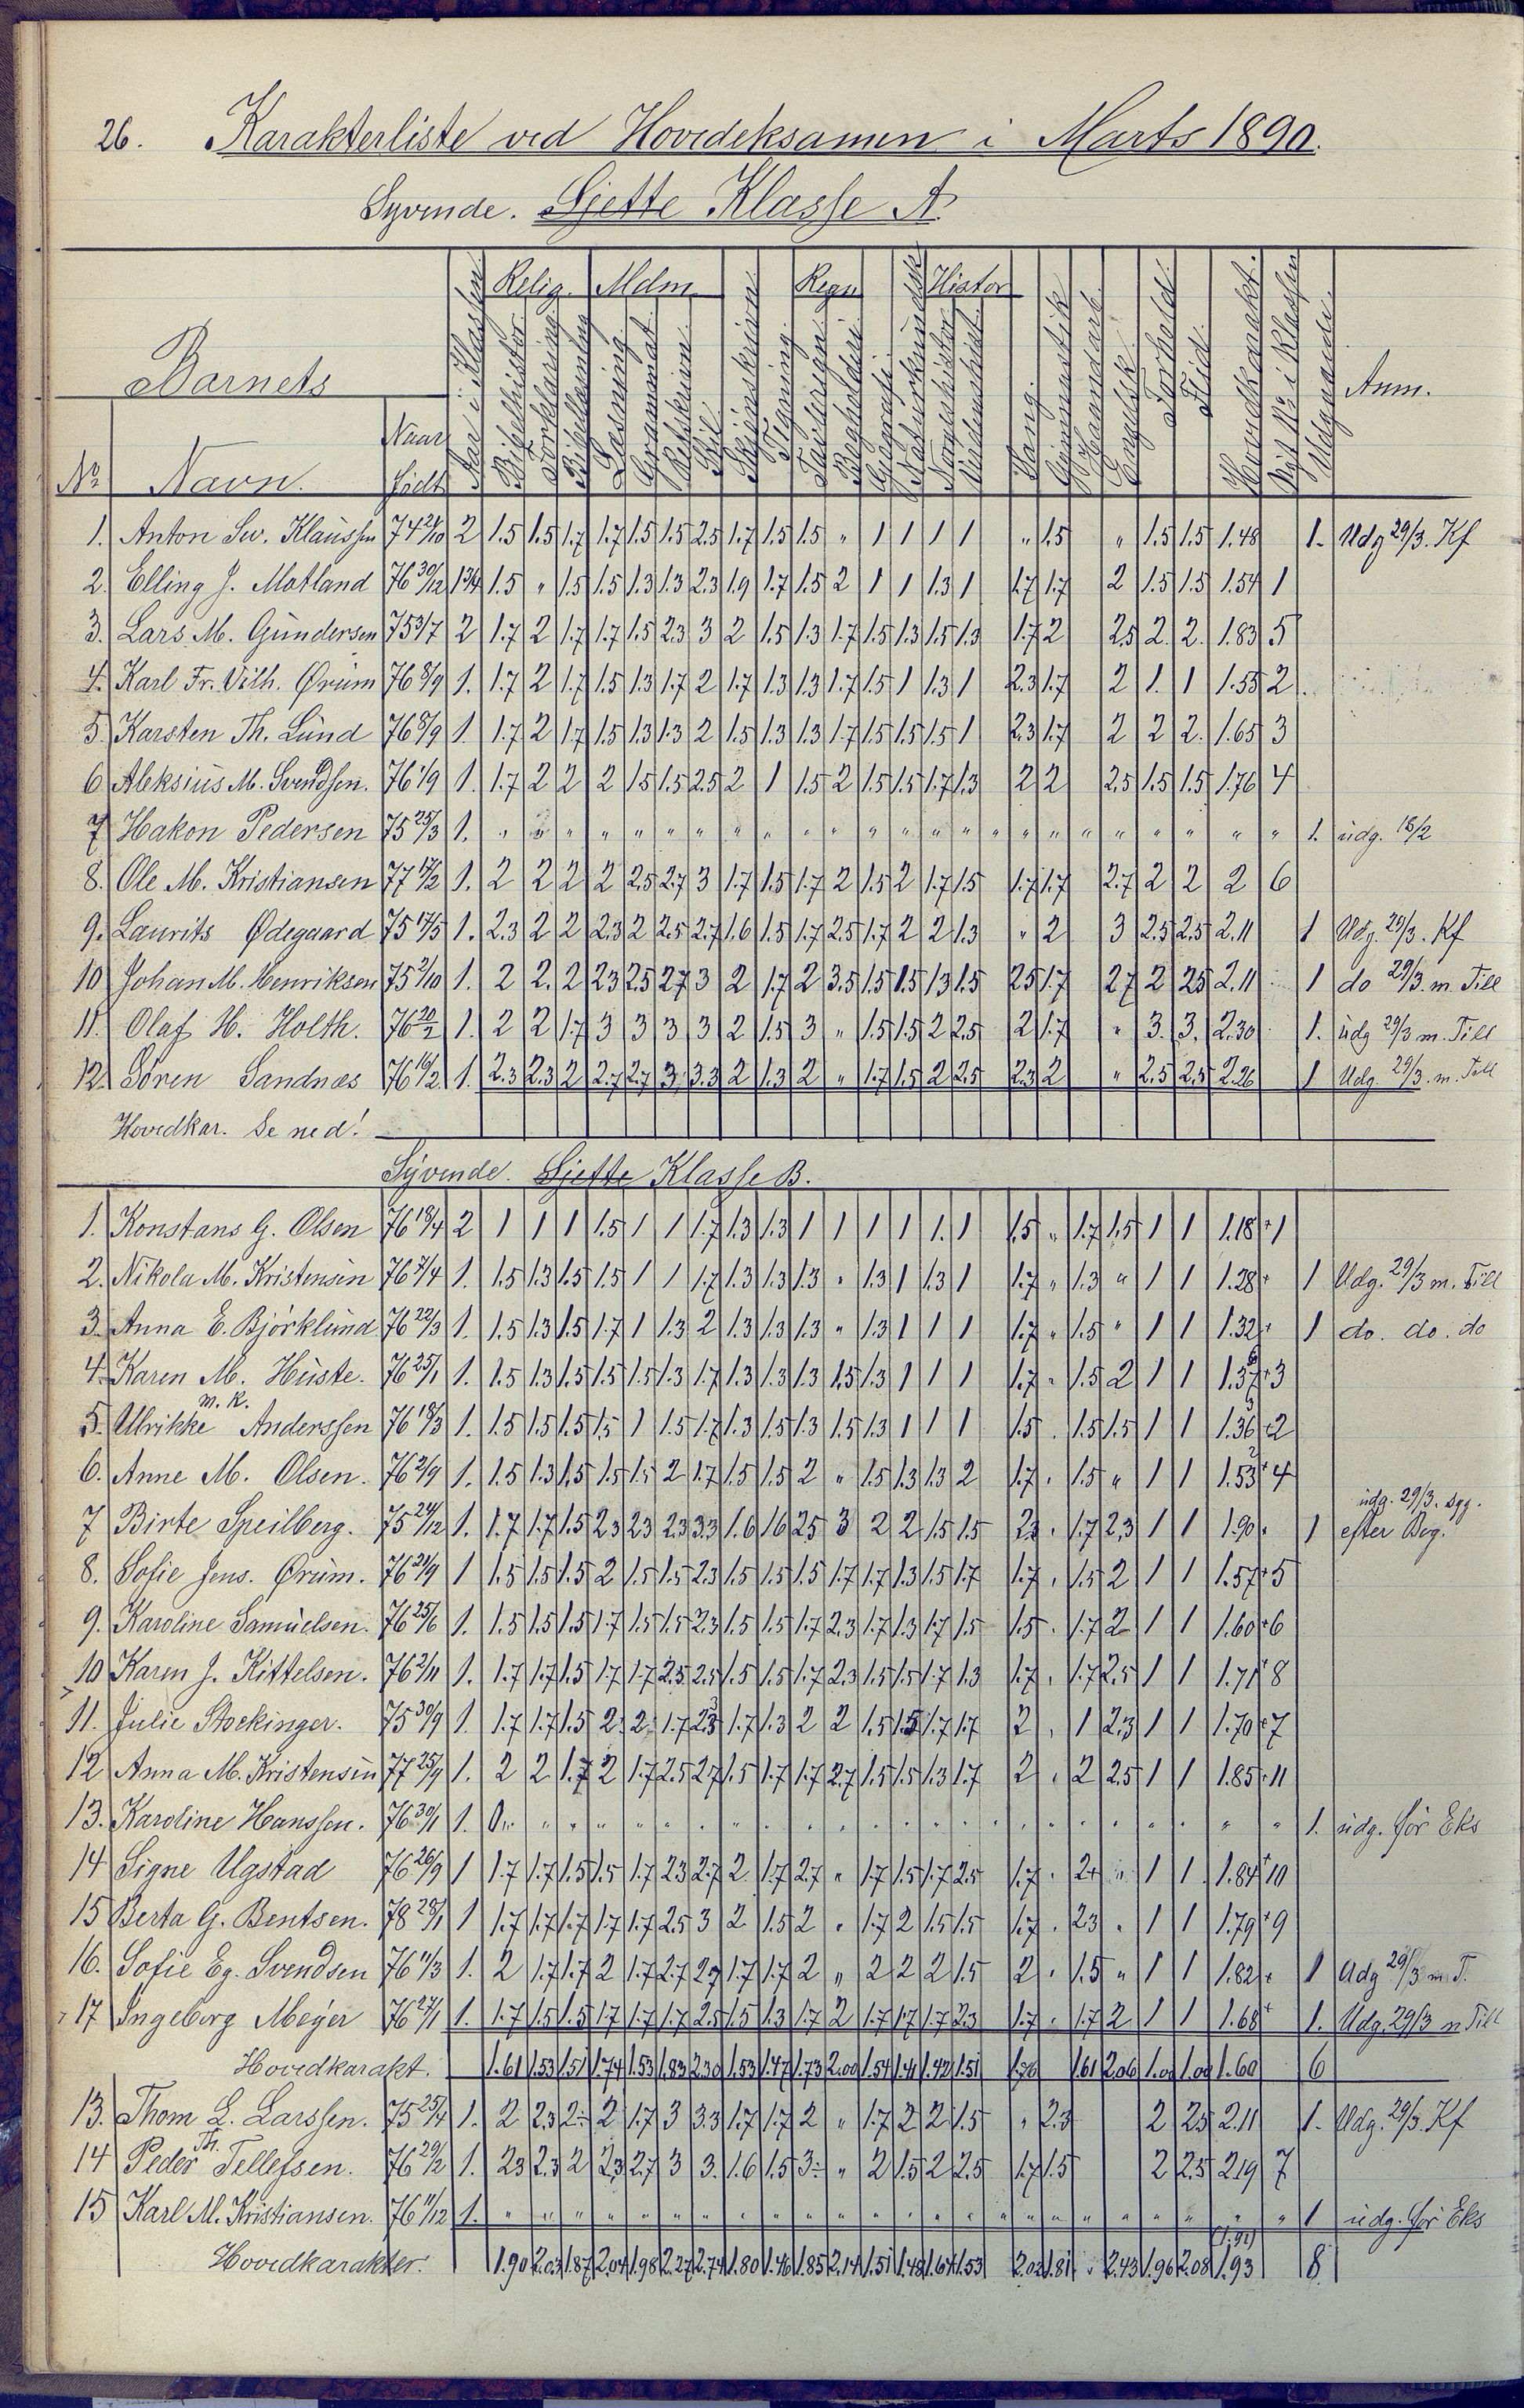 26. Karakterliste ved Hovedeksamen i Marts 1890.
Syvende. Sjette Klasse A.
Barnets
Nº Navn. Naar født Aar i Klassen Relig. Bibelhistor. Forklaring Bibellæsning Mdm. Læsning Grammat. Retskrivn. Stil Skjønskrivn. Tegning. Regn Tavleregn. Bogholderi Geografi Naturkundsk. Histor Norgeshistor Verdenshist. Sang Gymnastik Haandarb. Engelsk Forhold. Flid. Hovedkarakt. Nyt Nº i Klassen Udgaaede. Anm.
1. Anton Sev. Klaussen 74 21/10 2 1.5 1.5 1.7 1.7 1.5 1.5 2.5 1.7 1.5 1.5 " 1 1 1 1 " 1.5 " 1.5 1.5 1.48 1. Udg 29/3. Kf
2. Elling J. Motland 76 30/12 1 3/4 1.5 " 1.5 1.5 1.3 1.3 2.3 1.9 1.7 1.5 2 1 1 1.3 1 1.7 1.7 2 1.5 1.5 1.54 1
3. Lars M. Gundersen 75 3/7 2 1.7 2 1.7 1.7 1.5 2.3 3 2 1.5 1.3 1.7 1.5 1.3 1.5 1.3 1.7 2 2.5 2. 2. 1.83 5
4. Karl Fr. Vilh. Ørum 76 8/9 1. 1.7 2 1.7 1.5 1.3 1.7 2 1.7 1.3 1.3 1.7 1.5 1 1.3 1 2.3 1.7 2 1. 1 1.55 2.
5. Karsten Th. Lund 76 8/9 1. 1.7 2 1.7 1.5 1.3 1.3 2 1.5 1.3 1.3 1.7 1.5 1.5 1.5 1 2.3 1.7 2 2 2. 1.65 3
6 Aleksius M. Svendsen. 76 1/9 1. 1.7 2 2 2 1.5 1.5 2.5 2 1 1.5 2 1.5 1.5 1.7 1.3 2 2 2.5 1.5 1.5 1.76 4
7 Hakon Pedersen 75 25/3 1. " " " " " " " " " " " " " " " " " " " " " " " 1. udg. 18/2
8. Ole M. Kristiansen 77 17/2 1. 2 2 2 2 2.5 2.7 3 1.7 1.5 1.7 2 1.5 2 1.7 1.5 1.7 1.7 2.7 2 2 2 6
9. Laurits Ødegaard 75 17/5 1. 2.3 2 2 2.3 2 2.5 2.7 1.6 1.5 1.7 2.5 1.7 2 2 1.3 " 2 3 2.5 2.5 2.11 1 Udg. 29/3. Kf
10 Johan M. Henriksen 75 2/10 1. 2 2. 2 2.3 2.5 2.7 3 2 1.7 2 3.5 1.5 1.5 1.3 1.5 2.5 1.7 2.7 2 2.5 2.11 1 do 29/3. m. Till
11. Olaf H. Holth. 76 20/2 1. 2 2 1.7 3 3 3 3 2 1.5 3 " 1.5 1.5 2 2.5 2 1.7 " 3. 3. 2.30 1. udg 29/3 m. Till
12. Søren Sandnæs 76 16/2 1. 2.3 2.3 2 2.7 2.7 3 3.3 2 1.3 2 " 1.7 1.5 2 2.5 2.3 2 " 2.5 2.5 2.26 1 Udg. 29/3. m. Till
Hovedkar. Se ned!
Syvende. Sjette Klasse B.
1. Konstans G. Olsen 76 18/4 2 1 1 1 1.5 1 1 1.7 1.3 1.3 1 1 1 1 1. 1 1.5 " 1.7 1.5 1 1 1.18 + 1
2. Nikola M. Kristensen 76 7/4 1. 1.5 1.3 1.5 1.5 1 1 1.7 1.3 1.3 1.3 " 1.3 1 1.3 1 1.7 " 1.3 " 1 1 1.28 + 1 Udg. 29/3 m. Till
3. Anna E. Bjørklund 76 22/3 1. 1.5 1.3 1.5 1.7 1 1.3 2 1.3 1.3 1.3 " 1.3 1 1 1 1.7 " 1.5 " 1 1 1.32 + 1 do. do. do
4. Karen M. Huste. 76 25/1 1. 1.5 1.3 1.5 1.5 1.5 1.3 1.7 1.3 1.3 1.3 1.5 1.3 1 1 1 1.7 " 1.5 2 1 1 1.37 + 3
5. Ulrikke m. K. Anderssen 76 18/3 1. 1.5 1.5 1.5 1.5 1 1.5 1.7 1.3 1.5 1.3 1.5 1.3 1 1 1 1.5 . 1.5 1.5 1 1 1.36 + 2
6. Anne M. Olsen. 76 2/9 1. 1.5 1.3 1.5 1.5 1.5 2 1.7 1.5 1.5 2 " 1.5 1.3 1.3 2 1.7 . 1.5 " 1 1 1.53 + 4
7 Birte Speilberg. 75 24/12 1. 1.7 1.7 1.5 2.3 2.3 2.3 3.3 1.6 1.6 2.5 3 2 2 1.5 1.5 2.3 . 1.7 2.3 1 1 1.90 . 1 udg. 29/3. sgg. efter Beg.
8. Sofie Jens. Ørum. 76 21/9 1 1.5 1.5 1.5 2 1.5 1.5 2.3 1.5 1.5 1.5 1.7 1.7 1.3 1.5 1.7 1.7 . 1.5 2 1 1 1.57 + 5
9. Karoline Samuelsen. 76 25/6 1. 1.5 1.5 1.5 1.7 1.5 1.5 2.3 1.5 1.5 1.7 2.3 1.7 1.3 1.7 1.5 1.5 . 1.7 2 1 1 1.60 + 6
10 Karen J. Kittelsen. 76 2/11 1. 1.7 1.7 1.5 1.7 1.7 2.5 2.5 1.5 1.5 1.7 2.3 1.5 1.5 1.7 1.3 1.7 . 1.7 2.5 1 1 1.71 + 8
11. Julie Stockinger. 75 30/9 1. 1.7 1.7 1.5 2. 2. 1.7 2.3 1.7 1.3 2 2 1.5 1.5 1.7 1.7 2 . 1 2.3 1 1 1.70 + 7
12 Anna M. Kristensen 77 25/9 1. 2 2 1.7 2 1.7 2.5 2.7 1.5 1.7 1.7 2.7 1.5 1.5 1.3 1.7 2 . 2 2.5 1 1 1.85 + 11
13. Karoline Hanssen. 76 30/1 1. 0 " " " " " " " " " " " " " " " " " " " " " " 1. udg. før Eks
14 Signe Ugstad 76 26/9 1 1.7 1.7 1.5 1.5 1.7 2.3 2.7 2 1.7 2.7 " 1.7 1.5 1.7 2.5 1.7 . 2+ " 1 1 1.84 + 10
15 Berta G. Bentsen. 78 28/1 1 1.7 1.7 1.7 1.7 1.7 2.5 3 2 1.5 2 " 1.7 2 1.5 1.5 1.7 . 2.3 " 1 1 1.79 + 9
16. Sofie Eg. Svendsen 76 11/3 1. 2 1.7 1.7 2 1.7 2.7 2.7 1.7 1.7 2 " 2 2 2 1.5 2 . 1.5 " 1 1 1.82 + 1 Udg 29/3 m T.
17 Ingeborg Meyer 76 27/1 1. 1.7 1.5 1.5 1.7 1.7 1.7 2.5 1.5 1.3 1.7 2 1.7 1.7 1.7 2.3 1.7 . 1.7 2 1 1 1.68 + 1. Udg. 29/3 m Till
Hovedkarakt. 1.61 1.53 1.51 1.74 1.53 1.83 2.30 1.53 1.47 1.73 2.00 1.54 1.41 1.42 1.51 1.76 1.61 2.06 1.00 1.00 1.60 6
13. Thom L. Larssen. 75 25/4 1. 2 2.3 2÷ 2 1.7 3 3.3 1.7 1.7 2 " 1.7 2 2 1.5 " 2.3 2 2.5 2.11 1. Udg. 29/3. Kf
14 Peder Th. Tellefsen. 76 29/2 1. 2.3 2.3 2 2.3 2.7 3 3. 1.6 1.5 3÷ " 2 1.5 2 2.5 1.7 1.5 2 2.5 2.19 7
15 Karl M. Kristiansen. 76 11/12 1. " " " " " " " " " " " " " " " " " " " " " " " 1 udg. før Eks
Hovedkarakter. 1.90 2.03 1.87 2.04 1.98 2.27 2.74 1.80 1.46 1.85 2.14 1.51 1.48 1.64 1.53 2.02 1.81 " 2.43 1.96 2.08 (1.91) 1.93 8